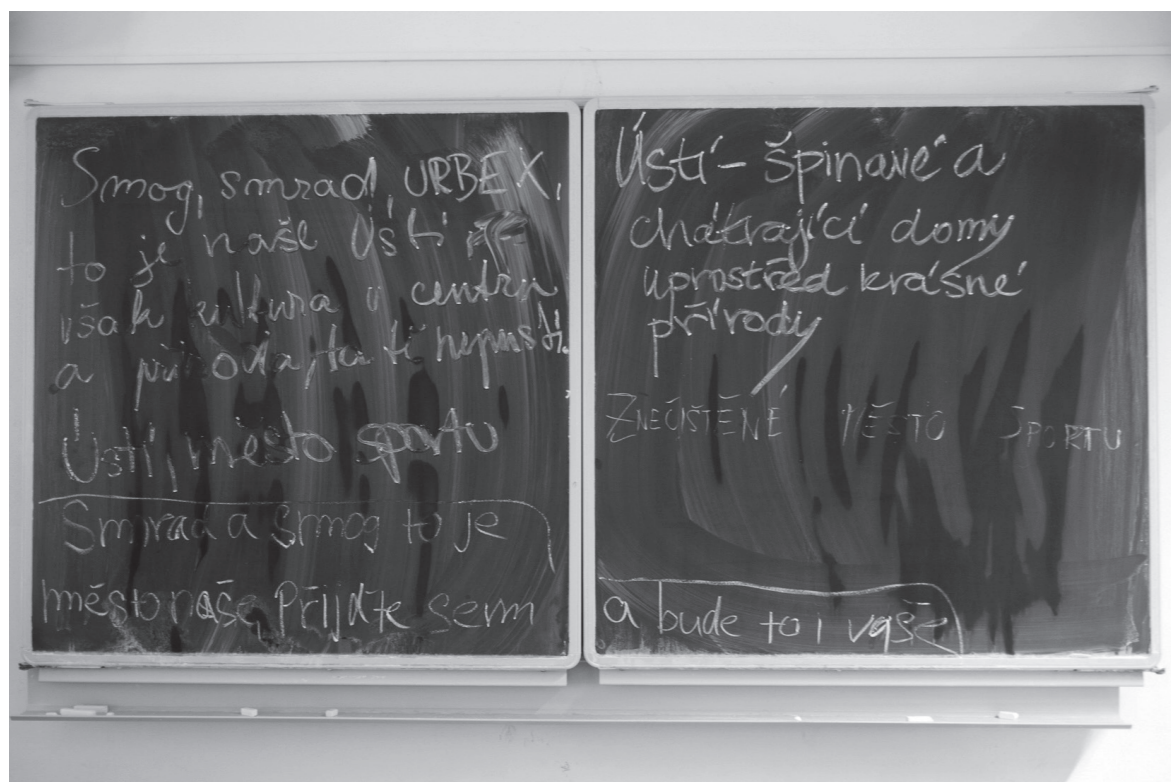 Smog, smrad, URBEX,
to je naše Ústí
však kultura v centru
a příroda, ta tě nepustí.
Ústí, město sportu
Smrad a smog to je
město naše, Přijďte sem
Ústí - špinavé a
chátrající domy
uprostřed krásné
přírody
ZNEČIŠTĚNÉ MĚSTO SPORTU
a bude to i vaše